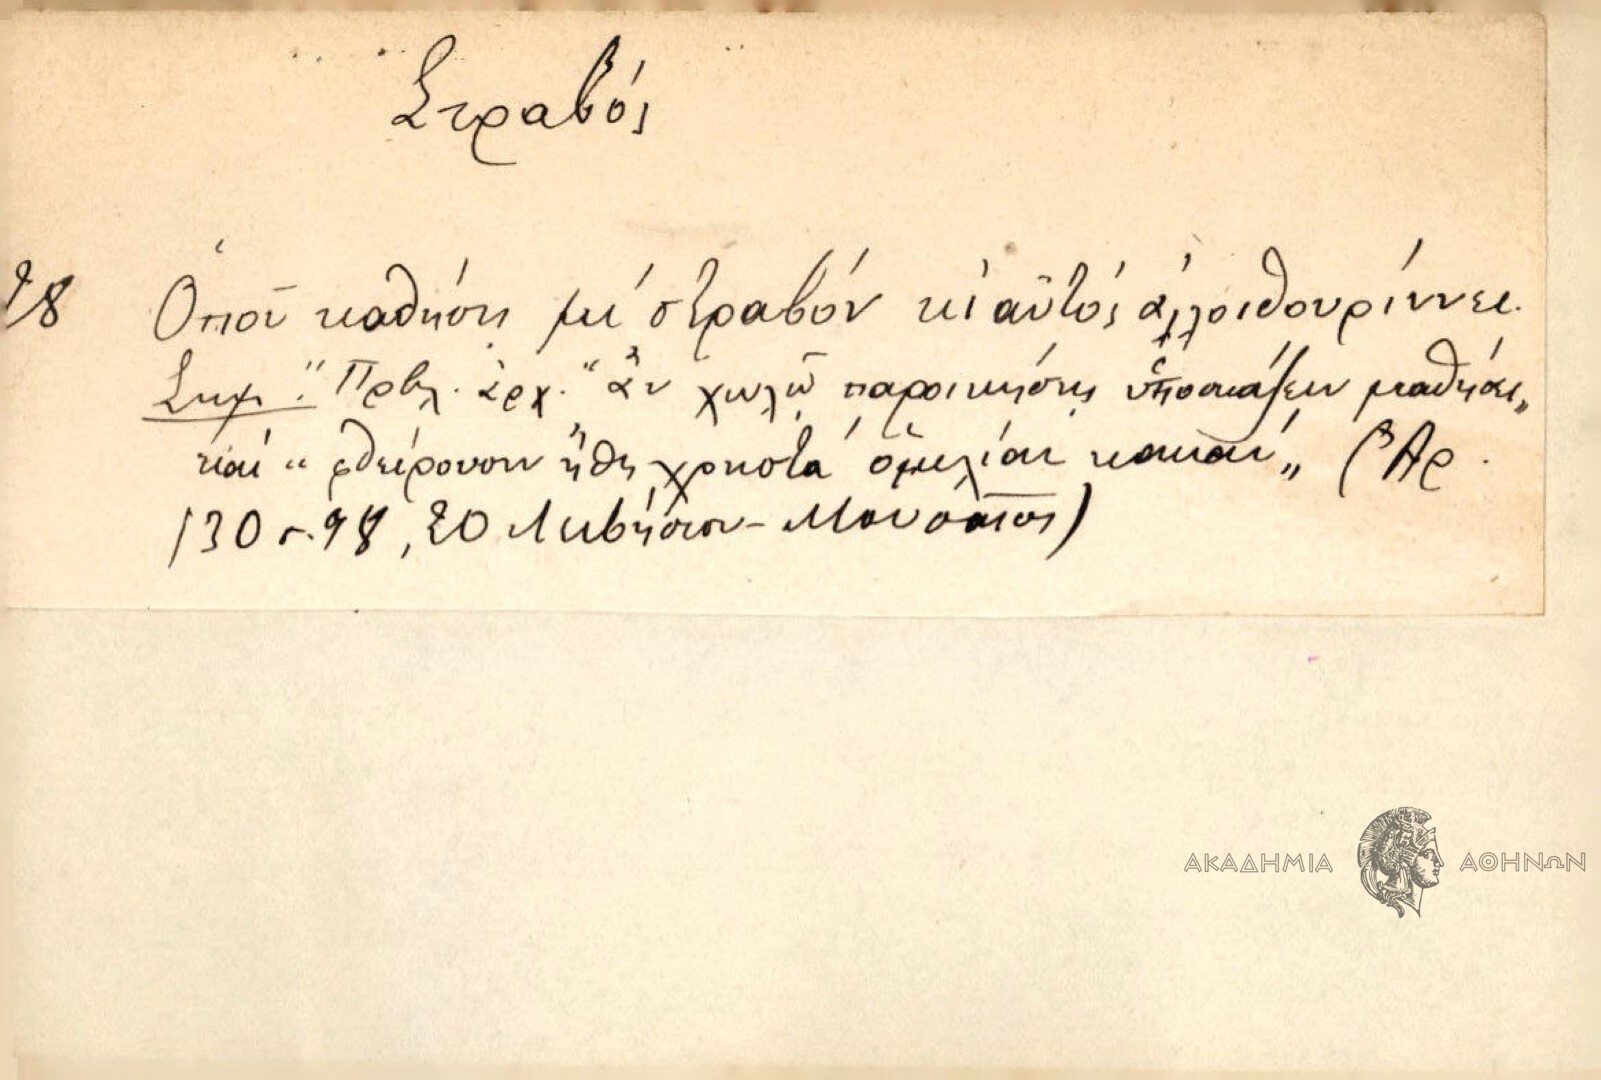 Στραβός
28 Ὁποῦ καθήσῃ μέ στραβόν κι αὐτός ἀλλοιθουρίννει.
Σημ: "Πρβλ. ἀρχ." ἄν χωλῷ παροικήσῃς ὑποσκάζειν μαθήσει„
καί "φθείρουσιν ἤθη χρηστά ὁμιλίαι κακαί„ (Ἀρ.
130 σ. 98, 20 Λιβήσιον - Μουσαῖος)
ΑΚΑΔΗΜΙΑ ΑΘΗΝΩΝ